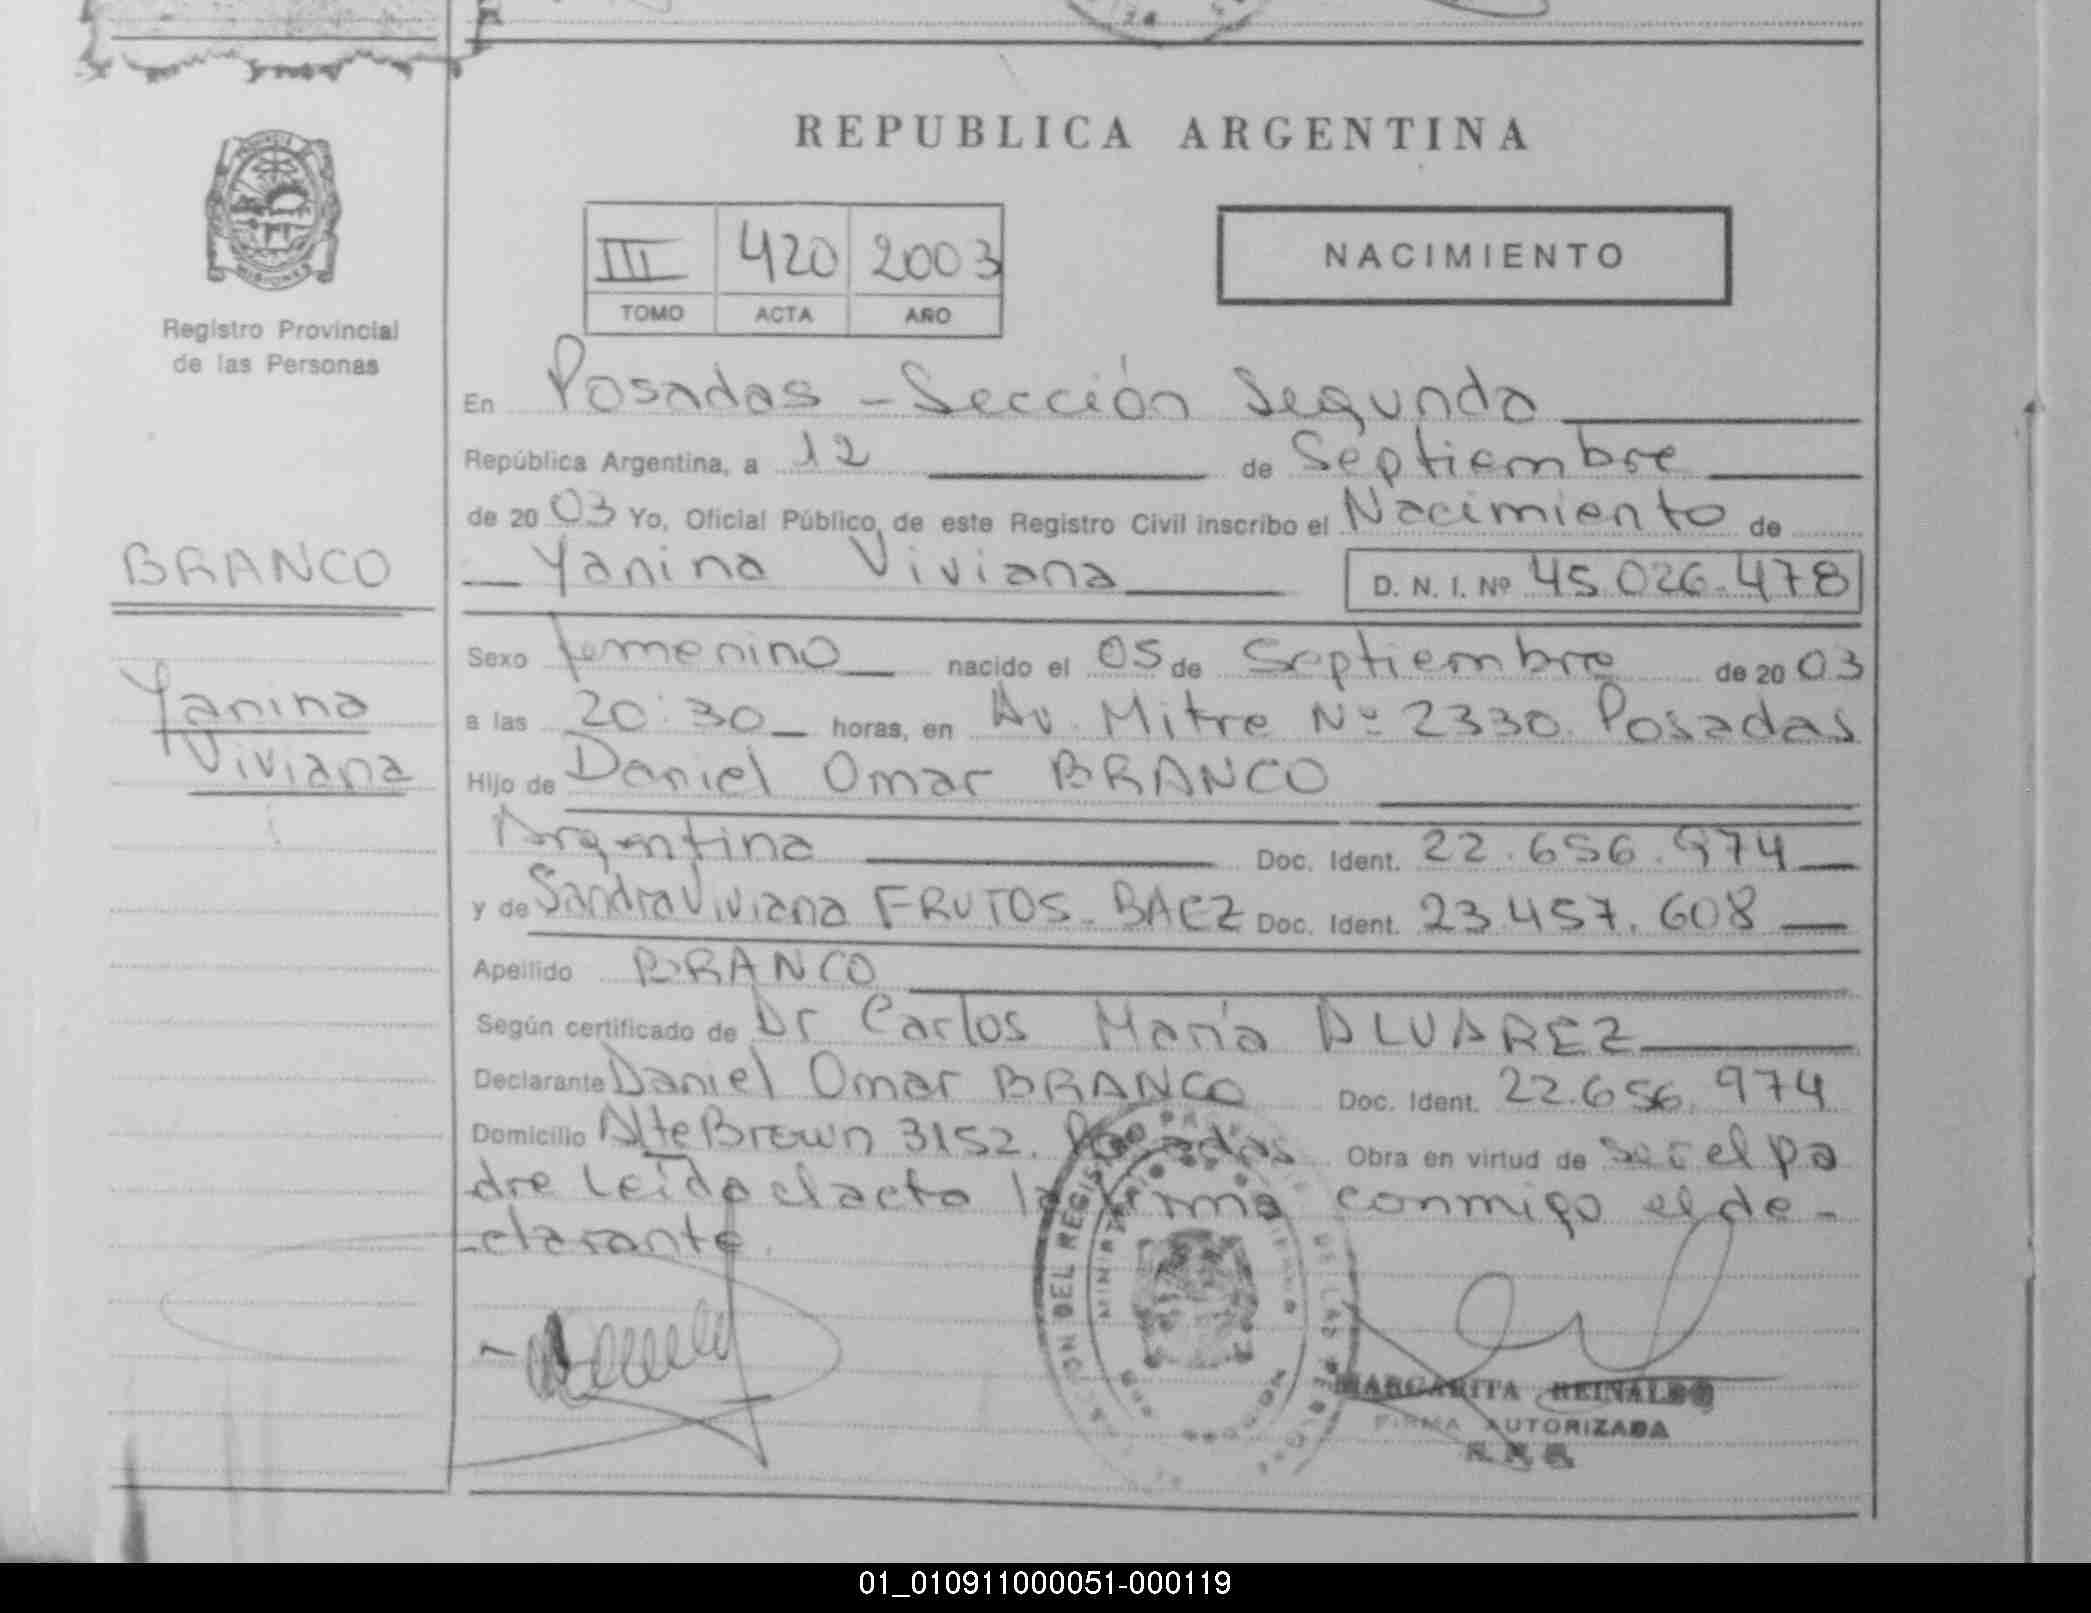 REPUBLICA ARGENTINA
III 420 2003
TOMO ACTA AÑO
NACIMIENTO
Registro Provincial
de las Personas
BRANCO
Yanina
Viviana
En Posadas - Sección Segunda
República Argentina, a 12 de Septiembre
de 2003 Yo, Oficial Público, de este Registro Civil inscribo el Nacimiento de
Yanina Viviana D. N. I. Nº 45.026.478
Sexo femenino nacido el 05 de Septiembre de 2003
a las 20:30 horas, en Av. Mitre Nº 2330. Posadas
Hijo de Daniel Omar BRANCO
Argentina Doc. Ident. 22.656.974
y de Sandra Viviana FRUTOS - BAEZ Doc. Ident. 23.457.608
Apellido BRANCO
Según certificado de Dr Carlos María ALVAREZ
Declarante Daniel Omar BRANCO Doc. Ident. 22.656.974
Domicilio Alte Brown 3152. Posadas Obra en virtud de ser el pa
dre Leída el acta la firma conmigo el de-
-clarante.
MARGARITA REINALDO
FIRMA AUTORIZADA
01_010911000051-000119